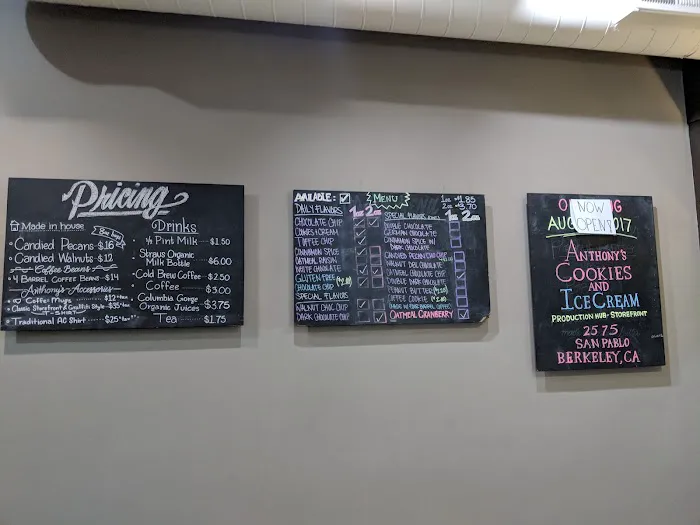 Pricing
Made in house
8oz bags
• Candied Pecans $16
• Candied Walnuts $12
Coffee Beans
• 4 Barrel Coffee Beans $14
Anthony's Accessories
Coffee Mugs $12 +tax
• Classic Storefront & Graffiti Style $35 +tax
T-SHIRT
• Traditional AC Shirt $25 +tax
Drinks
½ Pint Milk $1.50
Straus Organic
Milk Bottle $6.00
Cold Brew Coffee $2.50
Coffee $3.00
Columbia Gorge
Organic Juices $3.75
Tea $1.75
AVAILABLE:
MENU
1oz $1.85
2oz $3.70
DAILY FLAVORS 1oz 2oz
CHOCOLATE CHIP
COOKIES & CREAM
TOFFEE CHIP
CINNAMON SPICE
OATMEAL RAISIN
WHITE CHOCOLATE
GLUTEN FREE
CHOCOLATE CHIP
SPECIAL FLAVORS
WALNUT CHOC CHIP
DARK CHOCOLATE CHIP
SPECIAL FLAVORS 1oz 2oz
DOUBLE CHOCOLATE
GERMAN CHOCOLATE
CINNAMON SPICE W/
DARK CHOCOLATE
CANDIED PECAN CHOC CHIP
WALNUT DBL CHOCOLATE
OATMEAL CHOCOLATE CHIP
DOUBLE DARK CHOCOLATE
PEANUT BUTTER
TOFFEE COOKIE
OATMEAL CRANBERRY
NOW
OPEN!
AUG 2017
ANTHONY'S
COOKIES
AND
ICE CREAM
PRODUCTION HUB · STOREFRONT
2575
SAN PABLO
BERKELEY, CA